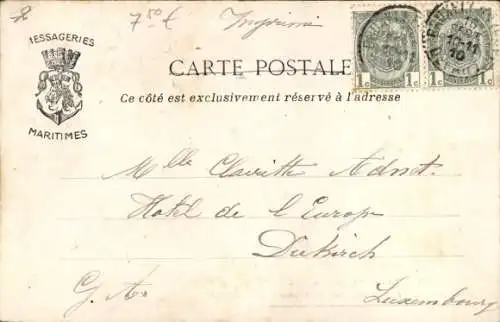 7 50 €
Imprimé
MESSAGERIES
MARITIMES
1c 1c 1c 1c
CARTE POSTALE
Ce côté est exclusivement réservé à l'adresse
Mlle Claritte Adnet.
Hotel de l'Europe
Diekirch
G. A.
Luxembourg